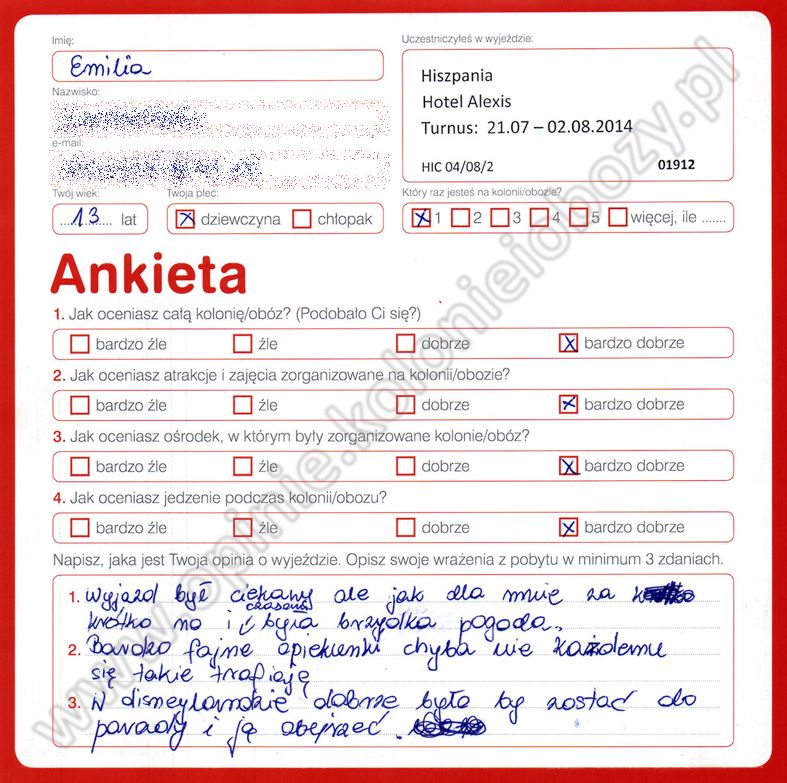 Imię:
Emilia
Nazwisko:
e-mail:
Twój wiek:
13 lat
Twoja płeć:
dziewczyna chłopak
Uczestniczyłeś w wyjeździe:
Hiszpania
Hotel Alexis
Turnus: 21.07 – 02.08.2014
HIC 04/08/2 01912
Który raz jesteś na kolonii/obozie?
1 2 3 4 5 więcej, ile .......
Ankieta
1. Jak oceniasz całą kolonię/obóz? (Podobało Ci się?)
bardzo źle źle dobrze bardzo dobrze
2. Jak oceniasz atrakcje i zajęcia zorganizowane na kolonii/obozie?
bardzo źle źle dobrze bardzo dobrze
3. Jak oceniasz ośrodek, w którym były zorganizowane kolonie/obóz?
bardzo źle źle dobrze bardzo dobrze
4. Jak oceniasz jedzenie podczas kolonii/obozu?
bardzo źle źle dobrze bardzo dobrze
Napisz, jaka jest Twoja opinia o wyjeździe. Opisz swoje wrażenia z pobytu w minimum 3 zdaniach.
1. Wyjazd był ciekawy ale jak dla mnie za
krótko no i czasami była brzydka pogoda.
2. Bardzo fajne opiekunki chyba nie każdemu
się takie trafiają
3. W disneylandzie dobrze było by zostać do
parady i ją obejrzeć.
www.opinie.kolonieiobozy.pl